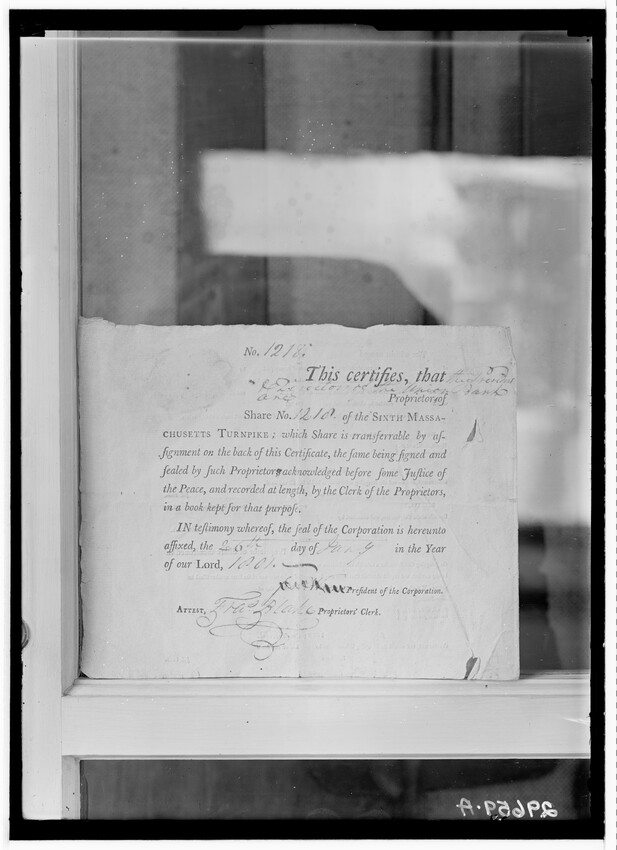 No. 1218.
This certifies, that the President
& Directors of the Union Bank
are Proprietors of
Share No. 1218 of the SIXTH MASSA-
CHUSETTS TURNPIKE; which Share is transferrable by aſ-
ſignment on the back of this Certificate, the ſame being ſigned and
ſealed by ſuch Proprietors acknowledged before ſome Juſtice of
the Peace, and recorded at length, by the Clerk of the Proprietors,
in a book kept for that purpoſe.
IN teſtimony whereof, the ſeal of the Corporation is hereunto
affixed, the 26th day of Jany in the Year
of our Lord, 1801.
President of the Corporation.
ATTEST, Fras Blake Proprietors' Clerk.
29659-A